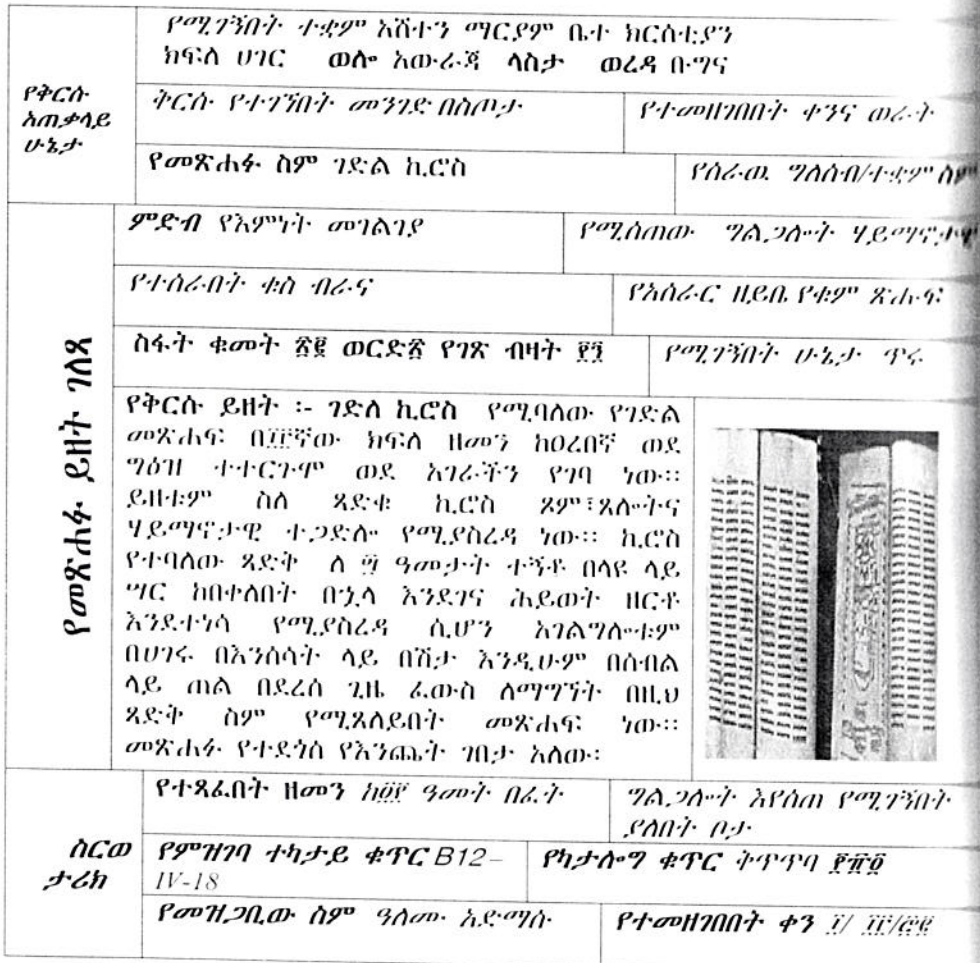 የሚገኝበት ተቋም አሸተን ማርያም ቤተ ክርስቲያን
ክፍለ ሀገር ወሎ አውራጃ ላስታ ወረዳ ቡግና
የቅርሱ
አጠቃላይ
ሁኔታ
ቅርሱ የተገኘበት መንገድ በስጦታ
የተመዘገበበት ቀንና ወራት
የመጽሐፉ ስም ገድል ኪሮስ
የሰራዉ ግለሰብ/ተቋም ስም
የመጽሐፉ ይዘት ገለጻ
ምድብ የእምነት መገልገያ
የሚሰጠው ግልጋሎት
የተሰራበት ቁስ ብራና
የአሰራር ዘይቤ የቁም ጽሑፍ
ስፋት ቁመት ወርድ የገጽ ብዛት
የሚገኝበት ሁኔታ ጥሩ
የቅርሱ ይዘት ፡- ገድለ ኪሮስ የሚባለው የገድል
መጽሐፍ በ፲፫ኛው ክፍለ ዘመን ከዐረበኛ ወደ
ግዕዝ ተተርጉሞ ወደ አገራችን የገባ ነው።
ይዘቱም ስለ ጻድቁ ኪሮስ ጾም፣ጸሎትና
ሃይማኖታዊ ተጋድሎ የሚያስረዳ ነው። ኪሮስ
የተባለው ጻድቅ ለ ዓመታት ተኝቶ በላዩ ላይ
ሣር ከበቀለበት በኋላ እንደገና ሕይወት ዘርቶ
እንደተነሳ የሚያስረዳ ሲሆን አገልግሎቱም
በሀገሩ በእንሰሳት ላይ በሽታ እንዲሁም በሰብል
ላይ ጠል በደረሰ ጊዜ ፈውስ ለማግኘት በዚህ
ጻድቅ ስም የሚጸለይበት መጽሐፍ ነው።
መጽሐፉ የተደጎሰ የእንጨት ገበታ አለው፡
ስርወ
ታሪክ
የተጻፈበት ዘመን ዓመት በፊት
ግልጋሎት እየሰጠ የሚገኝበት
ያለበት ቦታ
የምዝገባ ተካታይ ቁጥር B12-
IV-18
የካታሎግ ቁጥር ቅጥጥባ
የመዝጋቢው ስም ዓለሙ አድማሱ
የተመዘገበበት ቀን